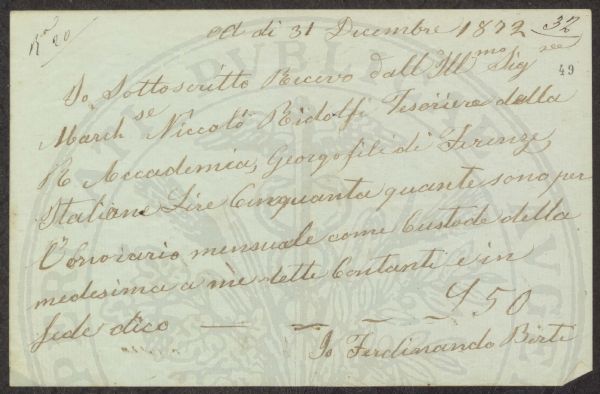 R.ta 20
ad di 31 Dicembre 1872
32
49
Io Sottoscritto Ricevo dall Ill.mo Sig.re
March.se Niccolò Ridolfi Tesoriere della
R Accademia, Georgofili di Firenze,
Italiane Lire Cinquanta quante sono per
l'Onorario mensuale come Custode della
medesima a me dette Contanti e in
fede dico — £ 50
Io Ferdinando Birti